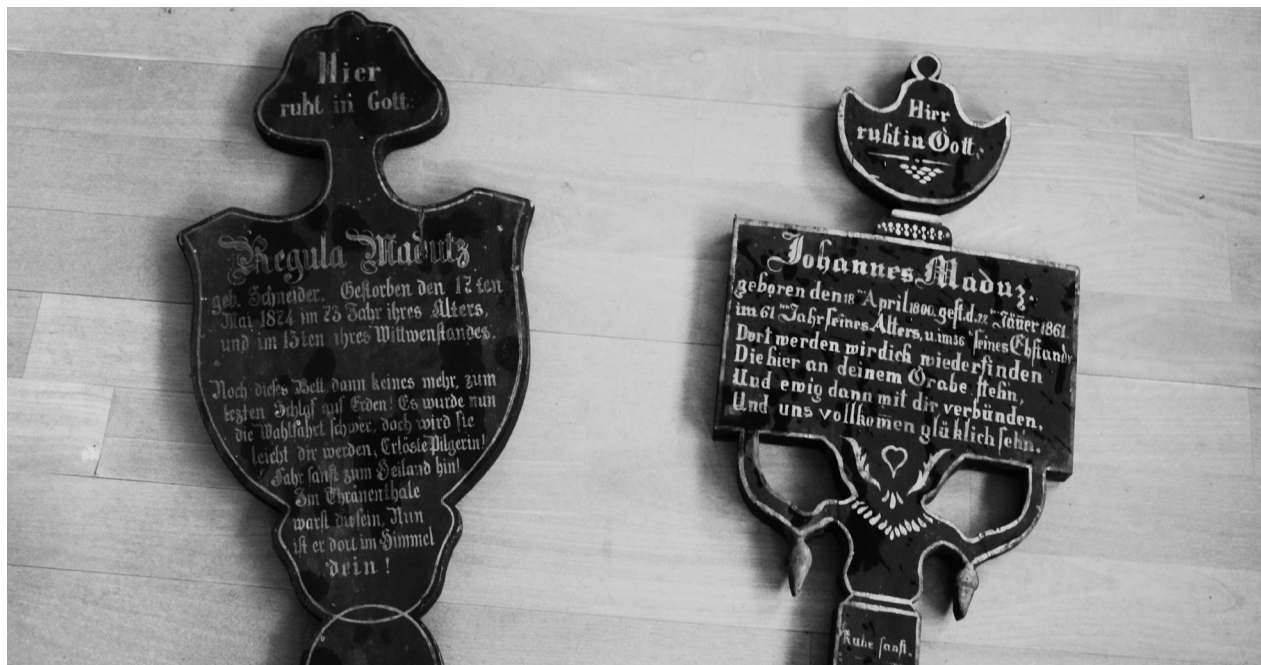 Hier
ruht in Gott.
Regula Madutz
geb. Schneider. Gestorben den 12ten
Mai 1874 im 73 Jahr ihres Alters,
und im 13ten ihres Wittwenstandes.
Noch dieses Bett dann keines mehr, zum
lezten Schlaf auf Erden! Es wurde nun
die Wahlfahrt schwer, doch wird sie
leicht dir werden, Erlöste Pilgerin!
Fahr sanft zum Heiland hin!
Im Thränenthale
warst du sein, Nun
ist er dort im Himmel
dein!
Hier
ruht in Gott.
Johannes Maduz.
geboren den 18ten April 1800. gest. d. 22ten Jäner 1861.
im 61ten Jahr seines Alters, u. im 36ten seines Ehstands
Dort werden wir dich wiederfinden
Die hier an deinem Grabe stehn,
Und ewig dann mit dir verbünden,
Und uns vollkomen glüklich sehn.
Ruhe sanft.